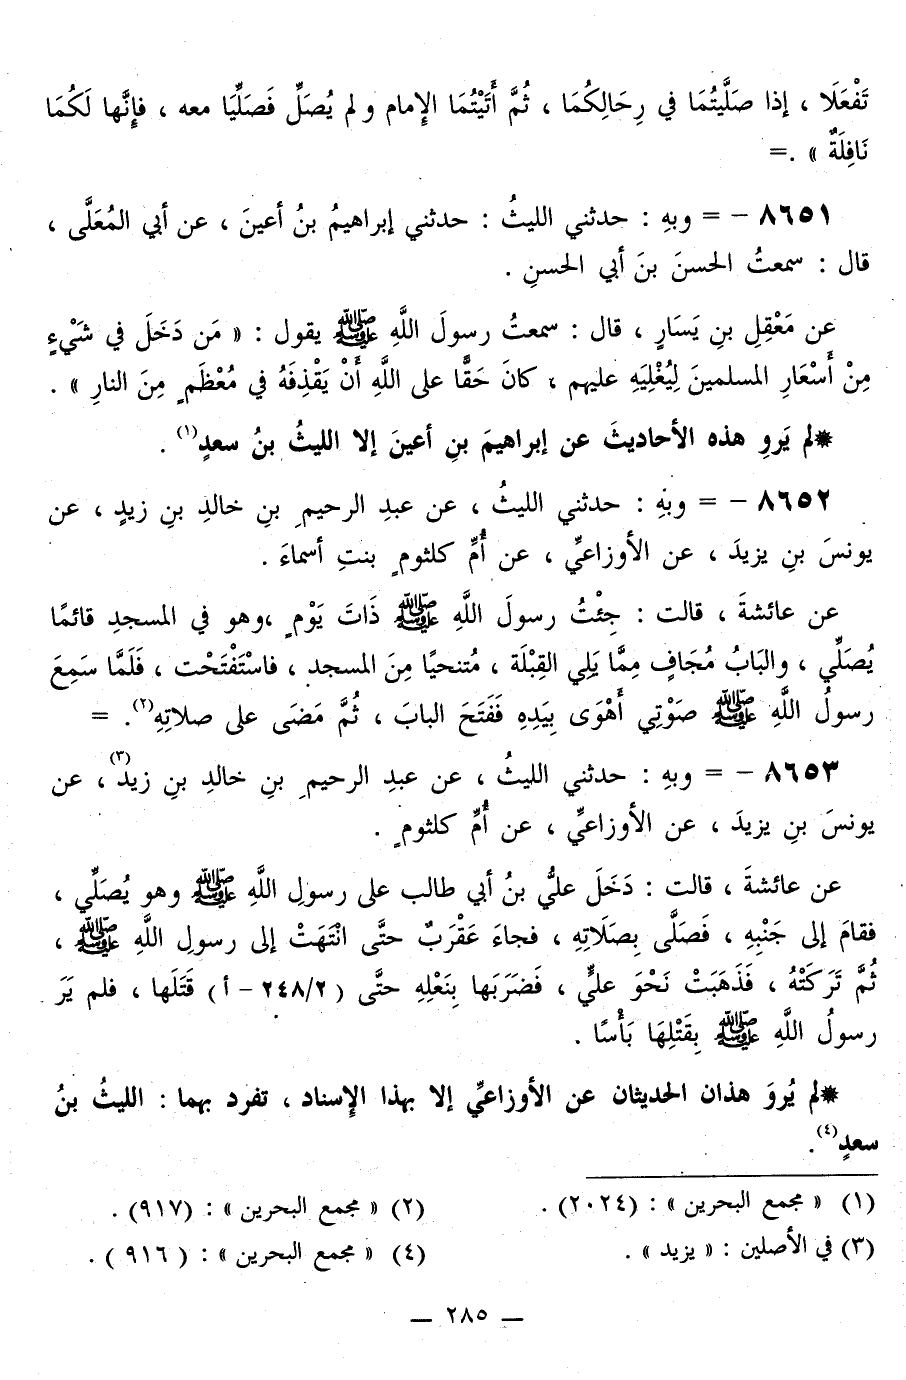 تَفْعَلَا ، إذا صَلَّيتُمَا في رِحَالِكُمَا ، ثُمَّ أَتَيْتُمَا الإمام و لم يُصَلِّ فَصَلِّيَا معه ، فإنَّها لَكُمَا
نَافِلَةٌ » .=
٨٦٥١ – = وبهِ : حدثني الليثُ : حدثني إبراهيمُ بنُ أعينَ ، عن أبي المُعَلَّى ،
قال : سمعتُ الحسنَ بنَ أبي الحسنِ .
عن مَعْقِلِ بنِ يَسَارٍ ، قال : سمعتُ رسولَ اللَّهِ ﷺ يقول : « مَن دَخَلَ في شَيْءٍ
مِنْ أَسْعَارِ المسلمينَ لِيُغْلِيَهِ عليهم ، كانَ حَقًّا على اللَّهِ أَنْ يَقْذِفَهُ في مُعْظَمٍ مِنَ النارِ » .
* لم يَروِ هذه الأحاديثَ عن إبراهيمَ بنِ أعينَ إلا الليثُ بنُ سعدٍ(١) .
٨٦٥٢ – = وبهِ : حدثني الليثُ ، عن عبدِ الرحيمِ بنِ خالدِ بنِ زيدٍ ، عن
يونسَ بنِ يزيدَ ، عن الأوزاعيِّ ، عن أُمِّ كلثومٍ بنتِ أسماءَ .
عن عائشةَ ، قالت : جِئْتُ رسولَ اللَّهِ ﷺ ذَاتَ يَوْمٍ ،وهو في المسجدِ قائمًا
يُصَلِّي ، والبَابُ مُجَافٍ مِمَّا يَلِي القِبْلَة ، مُتنحيًا مِنَ المسجد ، فاسْتَفْتَحْت ، فَلَمَّا سَمِعَ
رسولُ اللَّهِ ﷺ صَوْتِي أَهْوَى بِيَدِهِ فَفَتَحَ البابَ ، ثُمَّ مَضَى على صلاتِهِ(٢). =
٨٦٥٣ – = وبهِ : حدثني الليثُ ، عن عبدِ الرحيمِ بنِ خالدِ بنِ زيد(٣)، عن
يونسَ بنِ يزيدَ ، عن الأوزاعيِّ ، عن أُمِّ كلثومٍ .
عن عائشةَ ، قالت : دَخَلَ عليُّ بنُ أبي طالب على رسولِ اللَّهِ ﷺ وهو يُصَلِّي ،
فقامَ إلى جَنْبِهِ ، فَصَلَّى بِصَلَاتِهِ ، فجاءَ عَقْرَبٌ حتَّى انْتَهَتْ إلى رسولِ اللَّهِ ﷺ ،
ثُمَّ تَرَكَتْهُ ، فَذَهَبَتْ نَحْوَ عليٍّ ، فَضَرَبَها بِنَعْلِهِ حتَّى ( ٢٤٨/٢ – أ ) قَتَلَها ، فلم يَرَ
رسولُ اللَّهِ ﷺ بِقَتْلِهَا بَأْسًا .
* لم يُروَ هذان الحديثان عن الأوزاعيِّ إلا بهذا الإسناد ، تفرد بهما : الليثُ بنُ
سعدٍ(٤).
(١) « مجمع البحرين » : (٢٠٢٤) .
(٢) « مجمع البحرين » : (٩١٧) .
(٣) في الأصلين : « يزيد » .
(٤) « مجمع البحرين » : ( ٩١٦ ) .
— ٢٨٥ —